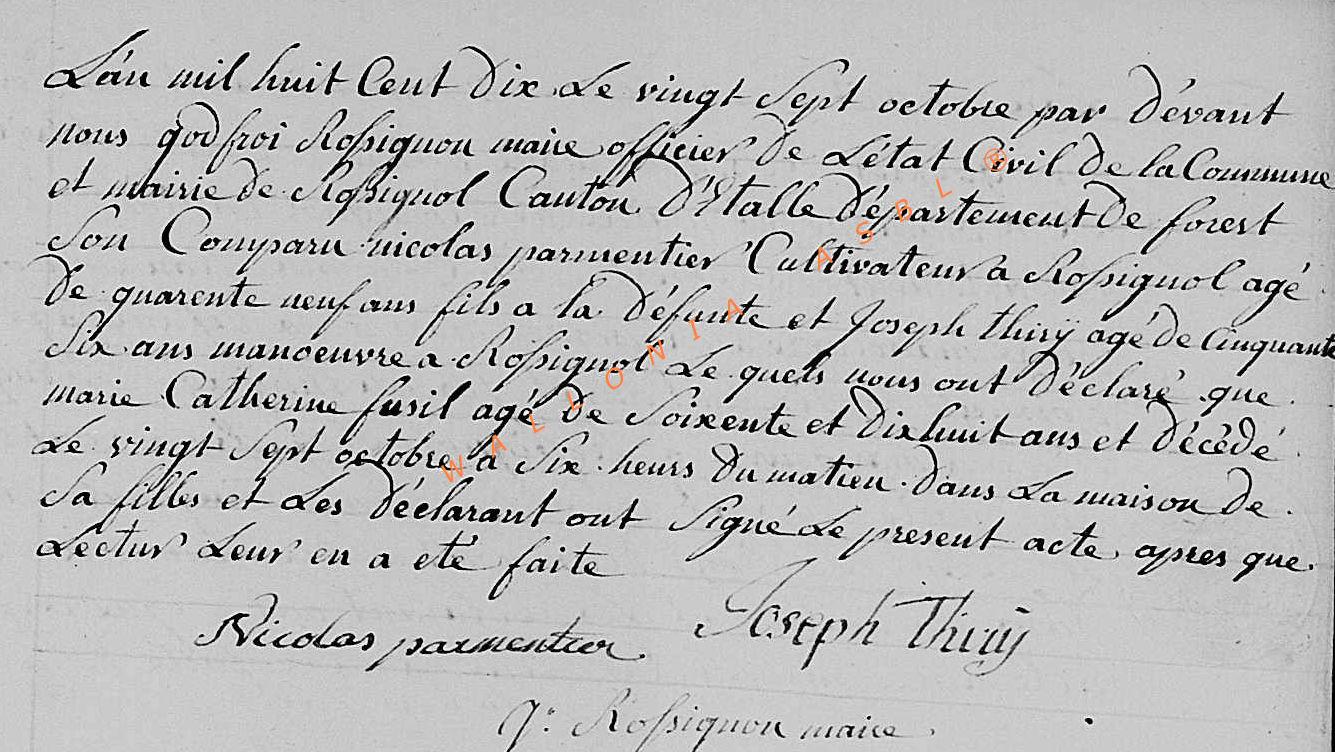 L'an mil huit Cent Dix Le vingt Sept octobre par dévant
nous godfroi Rossignon maire officier de L'état Civil de la Commune
et mairie de Rossignol Canton d'Étalle département de forest
Son Comparu nicolas parmentier Cultivateur a Rossignol agé
de quarente neuf ans fils a la défunte et Joseph thirÿ agé de Cinquante
Six ans manoeuvre a Rossignol Le quels nous ont déclaré que
marie Catherine fusil agé de Soixente et dixhuit ans et décédé
Le vingt Sept octobre a Six heurs du matien dans La maison de
Sa filles et Les déclarant ont Signé Le present acte apres que
Lectur Leur en a eté faite
Nicolas parmentier Joseph Thirÿ
g: Rossignon maire
WALLONIA ASBL ®